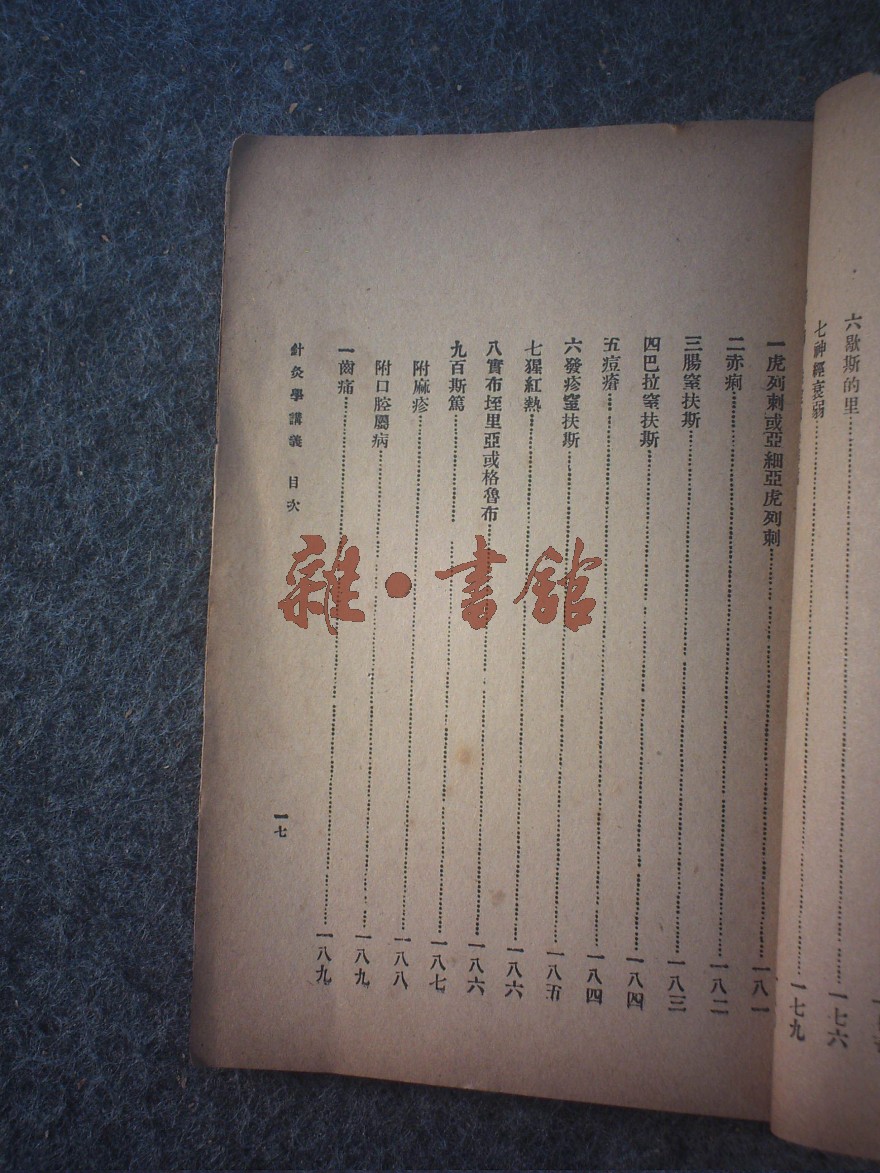 六歇斯的里……一七六
七神經衰弱……一七九
一虎列剌或亞細亞虎列剌……一八一
二赤痢……一八二
三腸窒扶斯……一八三
四巴拉窒扶斯……一八四
五痘瘡……一八四
六發疹窒扶斯……一八五
七猩紅熱……一八六
八實布垤里亞或格魯布……一八六
九百斯篤……一八七
附麻疹……一八八
附口腔屬病……一八九
一齒痛……一八九
針灸學講義 目次
一七
雜·書館